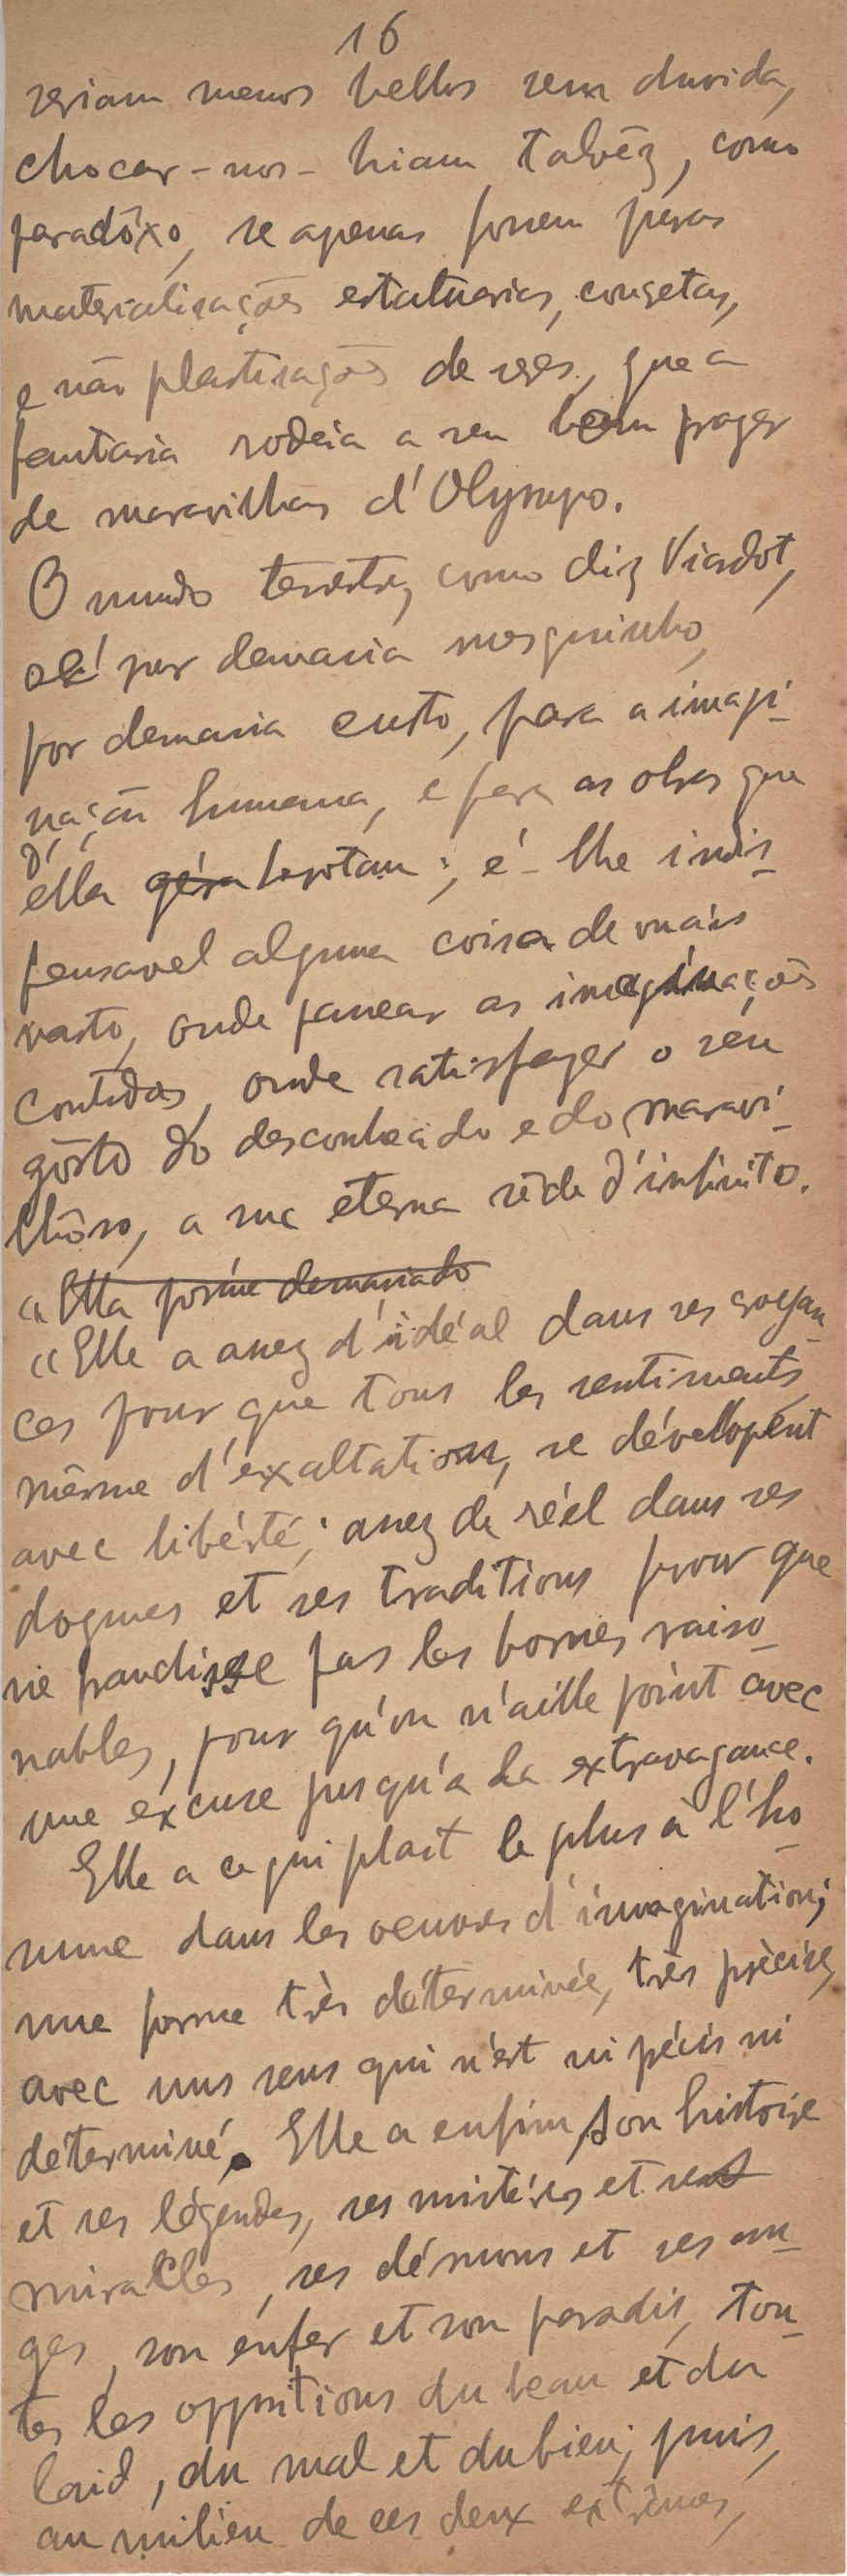 16
seriam menos bellos sem duvida,
chocar-nos-hiam talvêz, como
paradôxo, se apenas fossem puras
materialisações estatuarias, congetas,
e não plastisações de seres, que a
fantasia rodeia a seu bom prazer
de maravilhas d'Olympo.
O mundo terestre, como diz Viardot,
é por demasia mesquinho,
por demasia custo, para a imagi-
nação humana, e para as obras que
d'ella gésa brotam; é-lhe indis-
pensavel alguma coisa de mais
vasto, onde panear as imaginações
contidas, onde satisfazer o seu
gôsto do desconhecido e do maravi-
lhôso, a sua eterna sêde d'infinito.
"Ella posiue demasiado
"Elle a assez d'idéal dans ses croyan-
ces pour que tous les sentiments,
même d'exaltation, se dévellopent
avec libérté; assez de réel dans ses
dogmes et ses traditions pour que
ne franchisse pas les bornes raiso-
nables, pour qu'on n'aille point avec
une excuse jusqu'a la extravagance.
Elle a ce qui plait le plus à l'ho-
mme dans les oeuvres d'imagination;
une forme très déterminée, très précise,
avec uns sens qui n'est ni pécis ni
déterminé. Elle a enfin son histoire
et ses légendes, ses mistéres et ses
miracles, ses démons et ses an-
ges, son enfer et son paradis, tou-
tes les oppositions du beau et du
laid, du mal et du bien; puis,
au milieu de ces deux extrêmes,